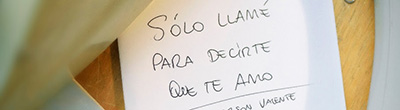 SÓLO LLAMÉ
PARA DECIRTE
QUE TE AMO
VALENTE